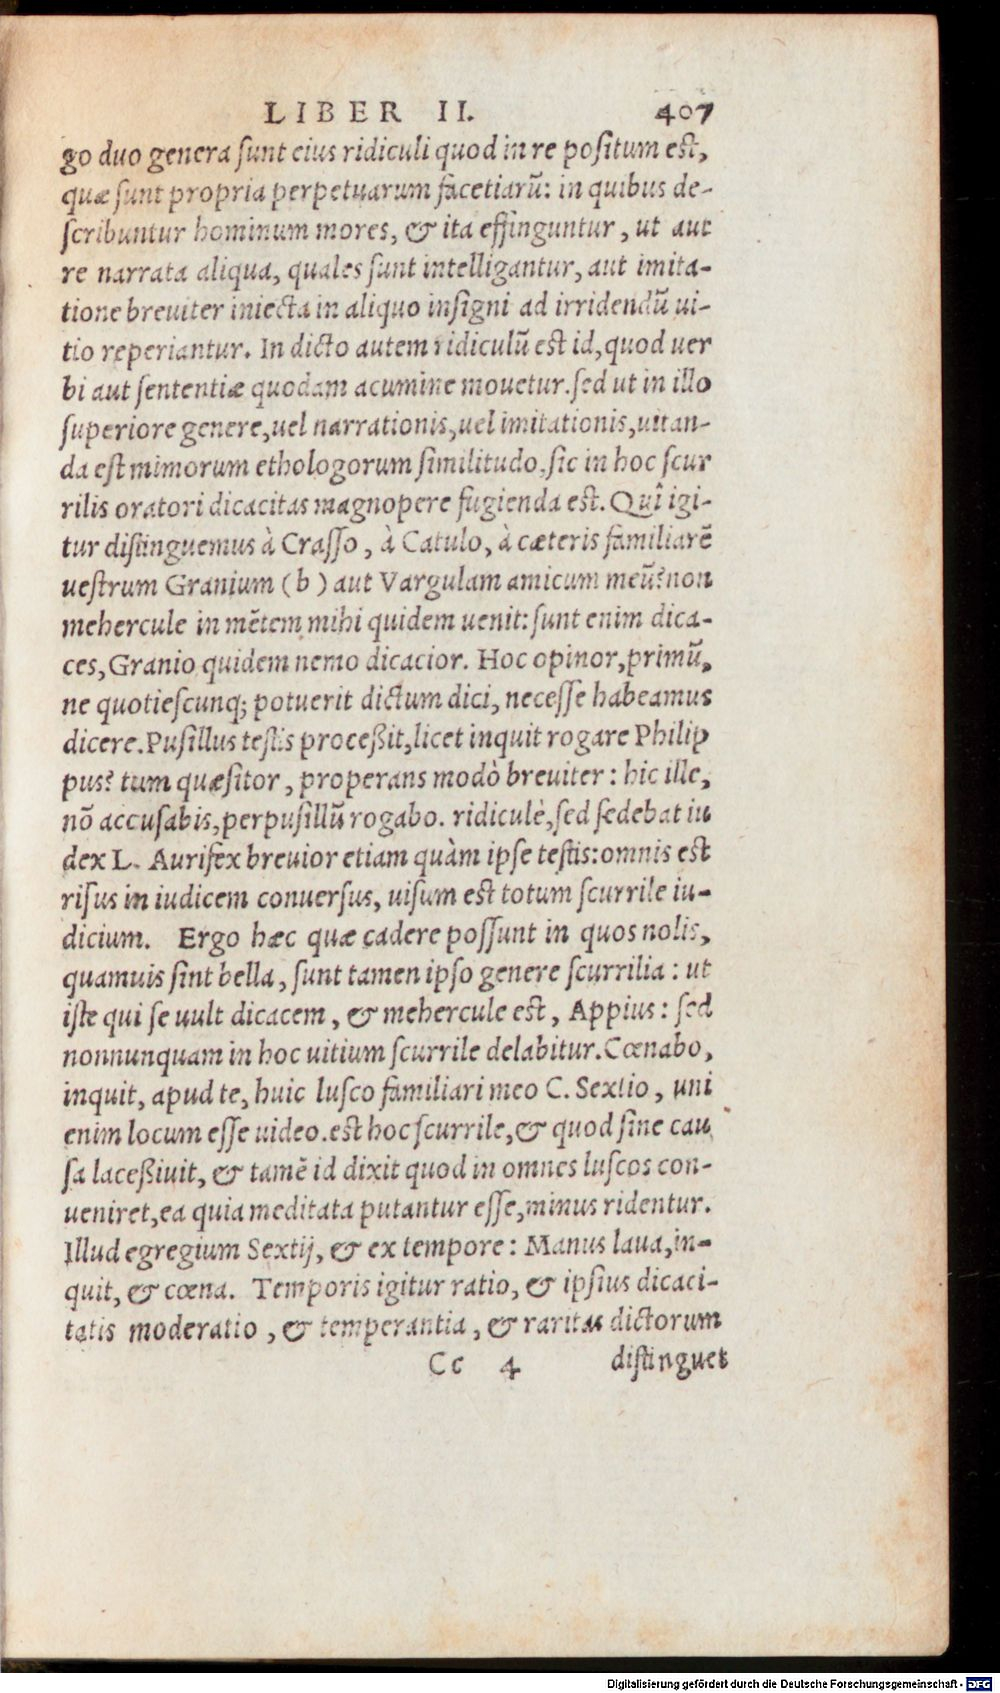 LIBER II. 407
go duo genera ſunt eius ridiculi quod in re poſitum eſt,
quæ ſunt propria perpetuarum facetiarū: in quibus de-
ſcribuntur hominum mores, & ita effinguntur, ut aut
re narrata aliqua, quales ſunt intelligantur, aut imita-
tione breuiter iniecta in aliquo inſigni ad irridendū ui-
tio reperiantur. In dicto autem ridiculū eſt id, quod uer
bi aut ſententiæ quodam acumine mouetur. ſed ut in illo
ſuperiore genere, uel narrationis, uel imitationis, uitan-
da eſt mimorum ethologorum ſimilitudo, ſic in hoc ſcur
rilis oratori dicacitas magnopere fugienda eſt. Quî igi-
tur diſtinguemus à Craſſo, à Catulo, à cæteris familiarē
ueſtrum Granium (b) aut Vargulam amicum meū? non
mehercule in mētem mihi quidem uenit: ſunt enim dica-
ces, Granio quidem nemo dicacior. Hoc opinor, primū,
ne quotieſcunq; potuerit dictum dici, neceſſe habeamus
dicere. Puſillus teſtis proceßit, licet inquit rogare Philip
pus? tum quæſitor, properans modò breuiter: hic ille,
nō accuſabis, perpuſillū rogabo. ridiculè, ſed ſedebat iu
dex L. Aurifex breuior etiam quàm ipſe teſtis: omnis eſt
riſus in iudicem conuerſus, uiſum eſt totum ſcurrile iu-
dicium. Ergo hæc quæ cadere poſſunt in quos nolis,
quamuis ſint bella, ſunt tamen ipſo genere ſcurrilia: ut
iſte qui ſe uult dicacem, & mehercule eſt, Appius: ſed
nonnunquam in hoc uitium ſcurrile delabitur. Cœnabo,
inquit, apud te, huic luſco familiari meo C. Sextio, uni
enim locum eſſe uideo. eſt hoc ſcurrile, & quod ſine cau
ſa laceßiuit, & tamē id dixit quod in omnes luſcos con-
ueniret, ea quia meditata putantur eſſe, minus ridentur.
Illud egregium Sextij, & ex tempore: Manus laua, in-
quit, & cœna. Temporis igitur ratio, & ipſius dicaci-
tatis moderatio, & temperantia, & raritas dictorum
Cc 4 diſtinguet
Digitalisierung gefördert durch die Deutsche Forschungsgemeinschaft - DFG